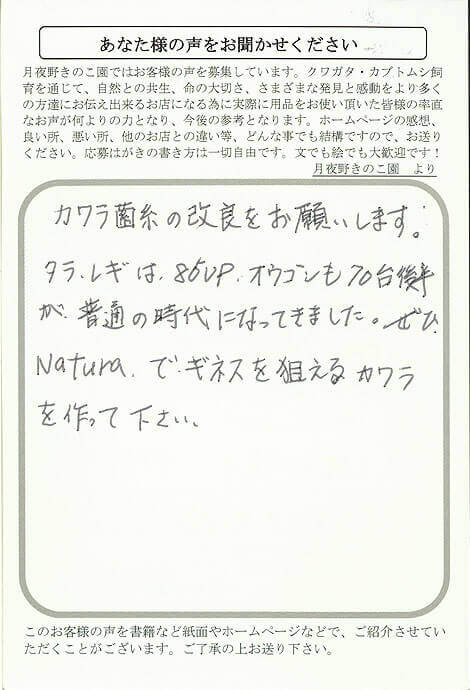 あなた様の声をお聞かせください
月夜野きのこ園ではお客様の声を募集しています。クワガタ・カブトムシ飼
育を通じて、自然との共生、命の大切さ、さまざまな発見と感動をより多く
の方達にお伝え出来るお店になる為に実際に用品をお使い頂いた皆様の率直
なお声が何よりの力となり、今後の参考となります。ホームページの感想、
良い所、悪い所、他のお店との違い等、どんな事でも結構ですので、お送り
ください。応募はがきの書き方は一切自由です。文でも絵でも大歓迎です！
月夜野きのこ園　より
カワラ菌糸の改良をお願いします。
タラ、レギは、85UP、オウゴンも70台後半
が、普通の時代になってきました。ぜひ、
Natura.で、ギネスを狙えるカワラ
を作って下さい、
このお客様の声を書籍など紙面やホームページなどで、ご紹介させてい
ただくことがございます。ご了承の上お送り下さい。